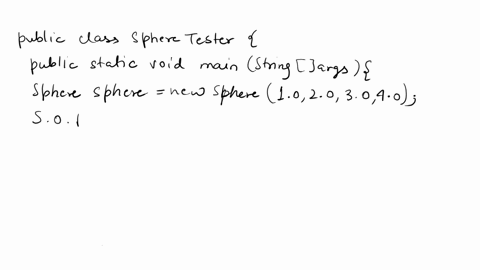 public class Sphere Tester {
public static void main (String []args){
Sphere sphere = new Sphere (1.0,2.0, 3.0,4.0);
S.o.